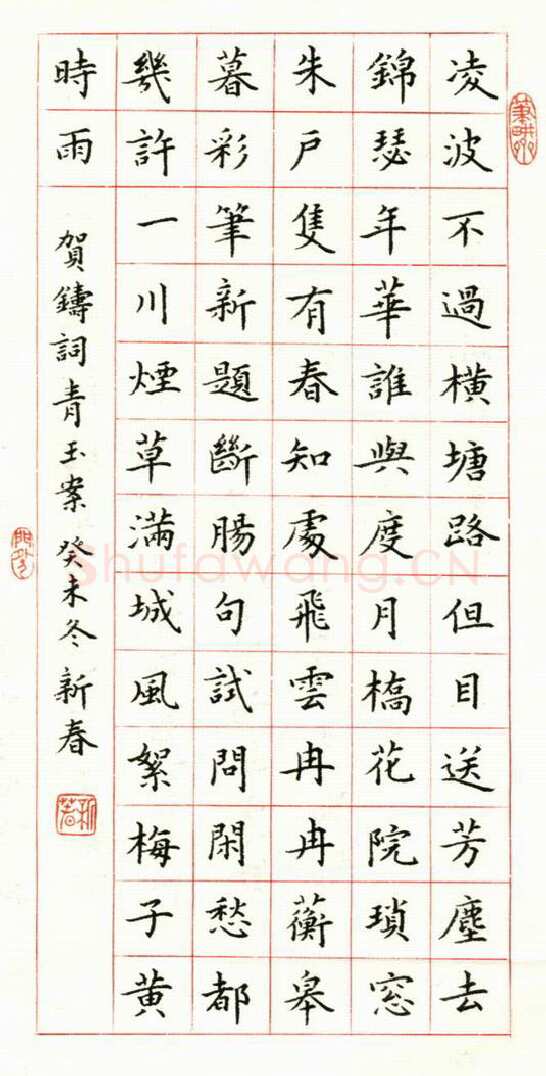 凌波不過橫塘路但目送芳塵去
錦瑟年華誰與度月橋花院瑣窓
朱戶隻有春知處飛雲冉冉蘅皋
暮彩筆新題斷腸句試問閑愁都
幾許一川煙草滿城風絮梅子黃
時雨
賀鑄詞青玉案 癸未冬新春
筆畊
新春
Shufawang.CN